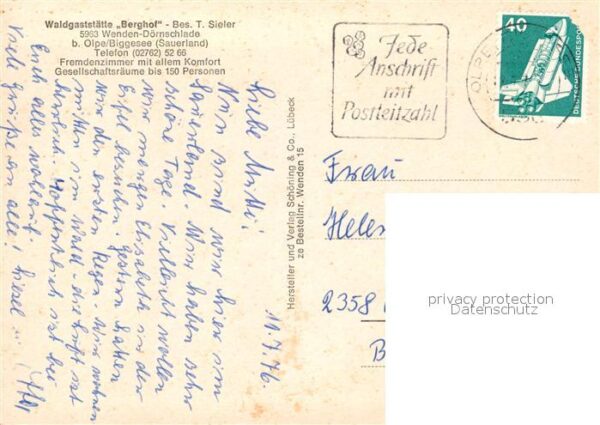 Waldgaststätte „Berghof" - Bes. T. Sieler
5963 Wenden-Dörnschlade
b. Olpe/Biggesee (Sauerland)
Telefon (02762) 52 66
Fremdenzimmer mit allem Komfort
Gesellschaftsräume bis 150 Personen
11.7.76
Liebe Mutti!
Nun sind wir hier im
Sauerland. Wir haben sehr
schöne Tage. Vielleicht wollen
wir morgen Elisabeth in der
Eifel besuchen. Gestern hatten
wir den ersten Regen. Wir wohnen
mitten im Wald - die Luft ist
herrlich. Hoffentlich ist bei
Euch alles wohlauf.
Viele Grüße an alle!
Hersteller und Verlag Schöning & Co., Lübeck
zo Bestellnr. Wenden 15
Jede
Anschrift
mit
Postleitzahl
OLPE
40
DEUTSCHE BUNDESPOST
Frau
Helen
2358
B
privacy protection
Datenschutz